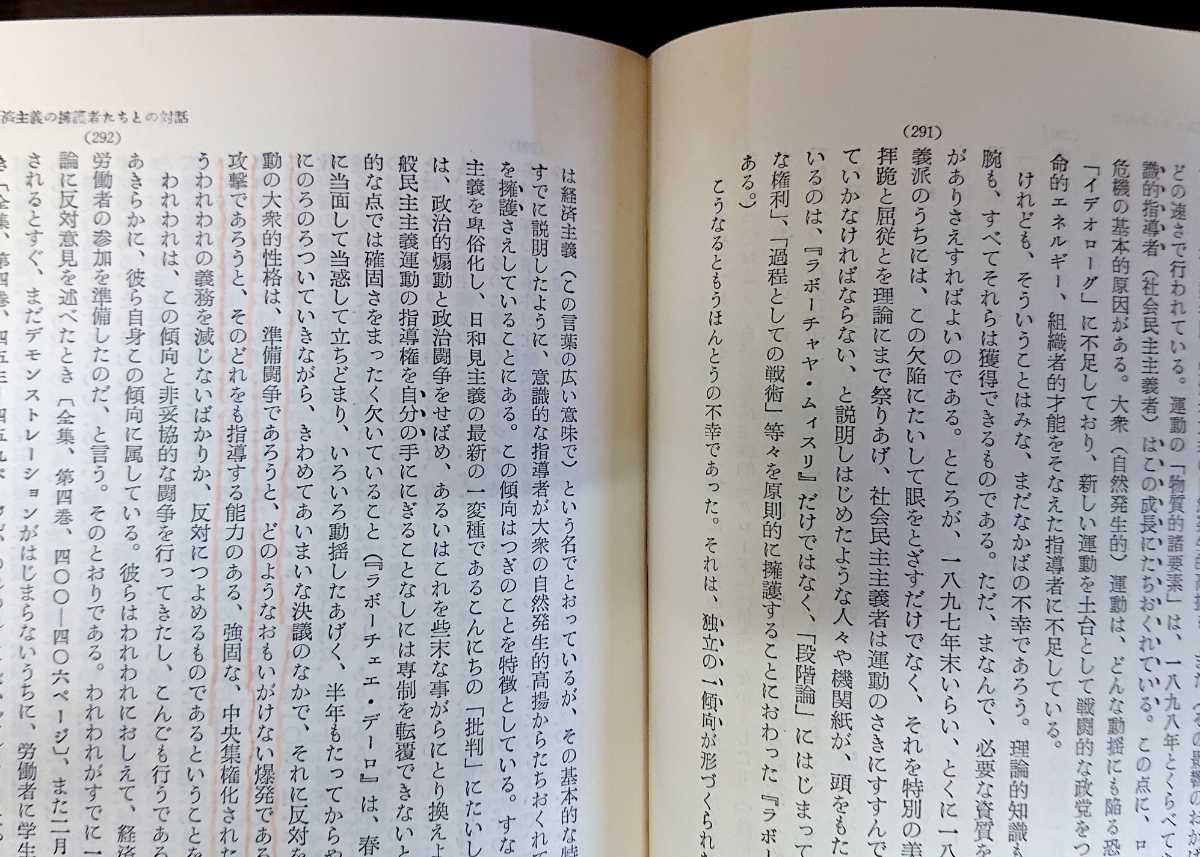 (291)
どの速さで行われている。運動の「物質的諸要素」は、一八九八年とくらべて
識的指導者(社会民主主義者)はこの成長にたちおくれている。この点に、ロ
危機の基本的原因がある。大衆(自然発生的)運動は、どんな動揺にも陥る恐
「イデオローグ」に不足しており、新しい運動を土台として戦闘的な政党をつ
命的エネルギー、組織者的才能をそなえた指導者に不足している。
けれども、そういうことはみな、まだなかばの不幸であろう。理論的知識も
腕も、すべてそれらは獲得できるものである。ただ、まなんで、必要な資質を
がありさえすればよいのである。ところが、一八九七年末いらい、とくに一八
義派のうちには、この欠陥にたいして眼をとざすだけでなく、それを特別の美
拝跪と屈従とを理論にまで祭りあげ、社会民主主義者は運動のさきにすすんで
ていかなければならない、と説明しはじめたような人々や機関紙が、頭をもた
いるのは、『ラボーチャヤ・ムィスリ』だけではなく、「段階論」にはじまって
な権利」、「過程としての戦術」等々を原則的に擁護することにおわった『ラボー
ある。)
こうなるともうほんとうの不幸であった。それは、独立の一傾向が形づくられた
済主義の擁護者たちとの対話
(292)
は経済主義(この言葉の広い意味で)という名でとおっているが、その基本的な特
すでに説明したように、意識的な指導者が大衆の自然発生的高揚からたちおくれて
を擁護さえしていることにある。この傾向はつぎのことを特徴としている。すな
主義を卑俗化し、日和見主義の最新の一変種であるこんにちの「批判」にたいし
は、政治的煽動と政治闘争をせばめ、あるいはこれを些末な事がらにとり換えよ
般民主主義運動の指導権を自分の手ににぎることなしには専制を転覆できないと
的な点では確固さをまったく欠いていること(『ラボーチェエ・デーロ』は、春
に当面して当惑して立ちどまり、いろいろ動揺したあげく、半年もたってからや
にのろのろついていきながら、きわめてあいまいな決議のなかで、それに反対を
動の大衆的性格は、準備闘争であろうと、どのようなおもいがけない爆発である
攻撃であろうと、そのどれをも指導する能力のある、強固な、中央集権化された
うわれわれの義務を減じないばかりか、反対につよめるものであるということを
われわれは、この傾向と非妥協的な闘争を行ってきたし、こんごも行うであ
あきらかに、彼ら自身この傾向に属している。彼らはわれわれにおしえて、経
労働者の参加を準備したのだ、と言う。そのとおりである。われわれがすでに一
論に反対意見を述べたとき〔全集、第四巻、四〇〇―四〇六ページ〕、また二月
されるとすぐ、まだデモンストレーションがはじまらないうちに、労働者に学生